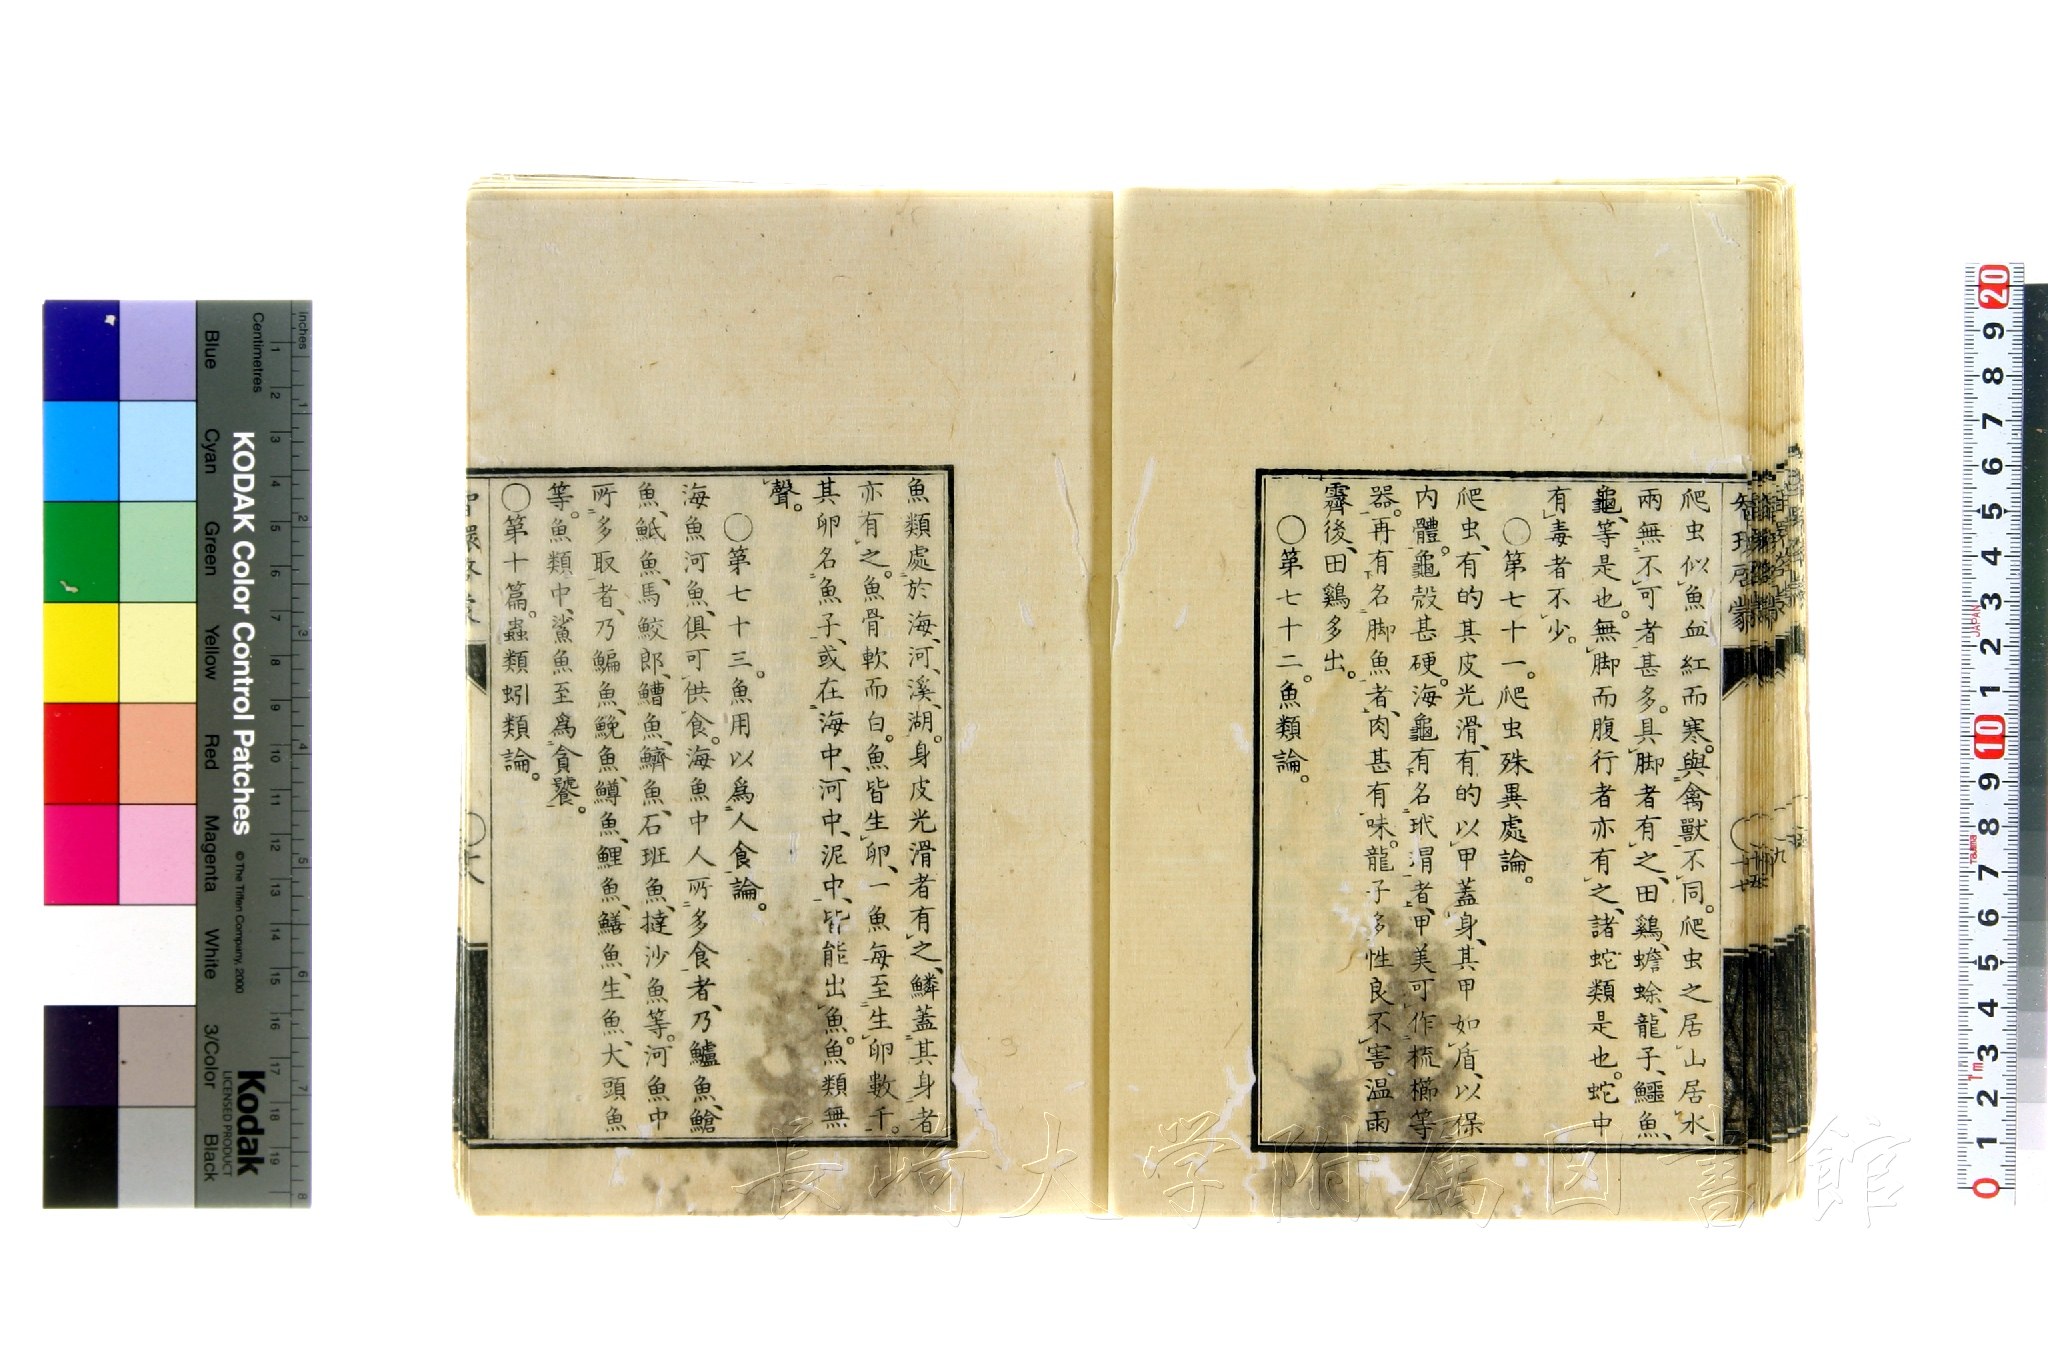 爬虫似魚血紅而寒。與禽獸不同。爬虫之居山居水、
兩無不可者甚多。具脚者有之、田鷄、蟾蜍、龍子、鱷魚、
龜等是也。無脚而腹行者亦有之、諸蛇類是也。蛇中
有毒者不少。
○第七十一。爬虫殊異處論。
爬虫、有的其皮光滑、有的以甲蓋身、其甲如盾、以保
內體。龜殼甚硬。海龜有名玳瑁者、甲美可作梳櫛等
器。再有名脚魚者、肉甚有味。龍子多性良不害。温雨
霽後、田鷄多出。
○第七十二。魚類論。
魚類處於海、河、溪、湖。身皮光滑者有之、鱗蓋其身者
亦有之。魚骨軟而白。魚皆生卵、一魚每至生卵數千。
其卵名魚子、或在海中、河中、泥中、皆能出魚。魚類無
聲。
○第七十三。魚用以爲人食論。
海魚河魚、俱可供食。海魚中人所多食者、乃鱸魚、鯧
魚、魠魚、馬鮫郎、鰽魚、鱭魚、石班魚、撻沙魚等。河魚中
所多取者、乃鯿魚、鯇魚、鱒魚、鯉魚、鱔魚、生魚、大頭魚
等。魚類中、鯊魚至爲貪饕。
○第十篇。蟲類蚓類論。
智環啓蒙
KODAK Color Control Patches
© The Tiffen Company, 2000
Kodak
LICENSED PRODUCT
inches
Centimetres
Blue
Cyan
Green
Yellow
Red
Magenta
White
3/Color
Black
1 2 3 4 5 6 7 8 9 10 11 12 13 14 15 16 17 18 19
1 2 3 4 5 6 7 8
20 9 8 7 6 5 4 3 2 1 10 9 8 7 6 5 4 3 2 1 0
JAPAN
Tajima
長崎大学附属図書館